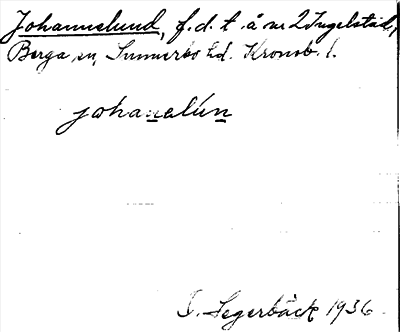 Johanneslund, f.d. t. å nr 2 Ingelstad,
Berga sn, Sunnerbo hd. Kronob. l.
johanalún
I. Segerbäck 1936